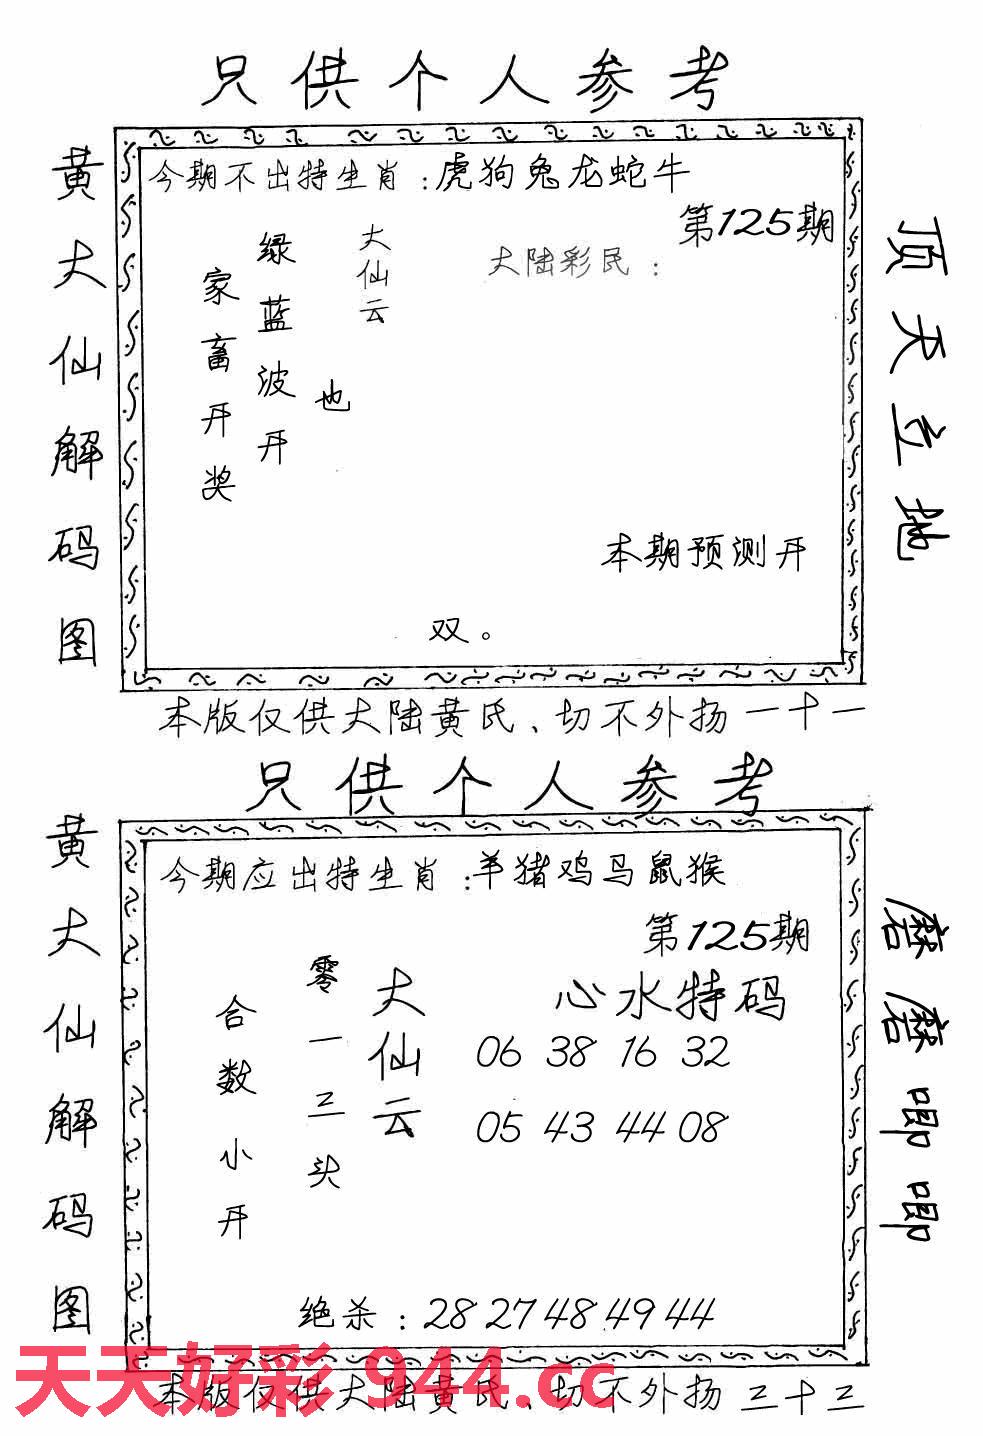 只供个人参考
黄大仙解码图
今期不出特生肖:虎狗兔龙蛇牛
第125期
大陆彩民:
大仙云
也
绿蓝波开
家畜开奖
本期预测开
双。
顶天立地
本版仅供大陆黄氏、切不外扬一十一
只供个人参考
黄大仙解码图
今期应出特生肖:羊猪鸡马鼠猴
第125期
心水特码
06 38 16 32
05 43 44 08
大仙云
零一三头
合数小开
绝杀:28 27 48 49 44
磨磨唧唧
本版仅供大陆黄氏、切不外扬三十三
天天好彩 944.cc